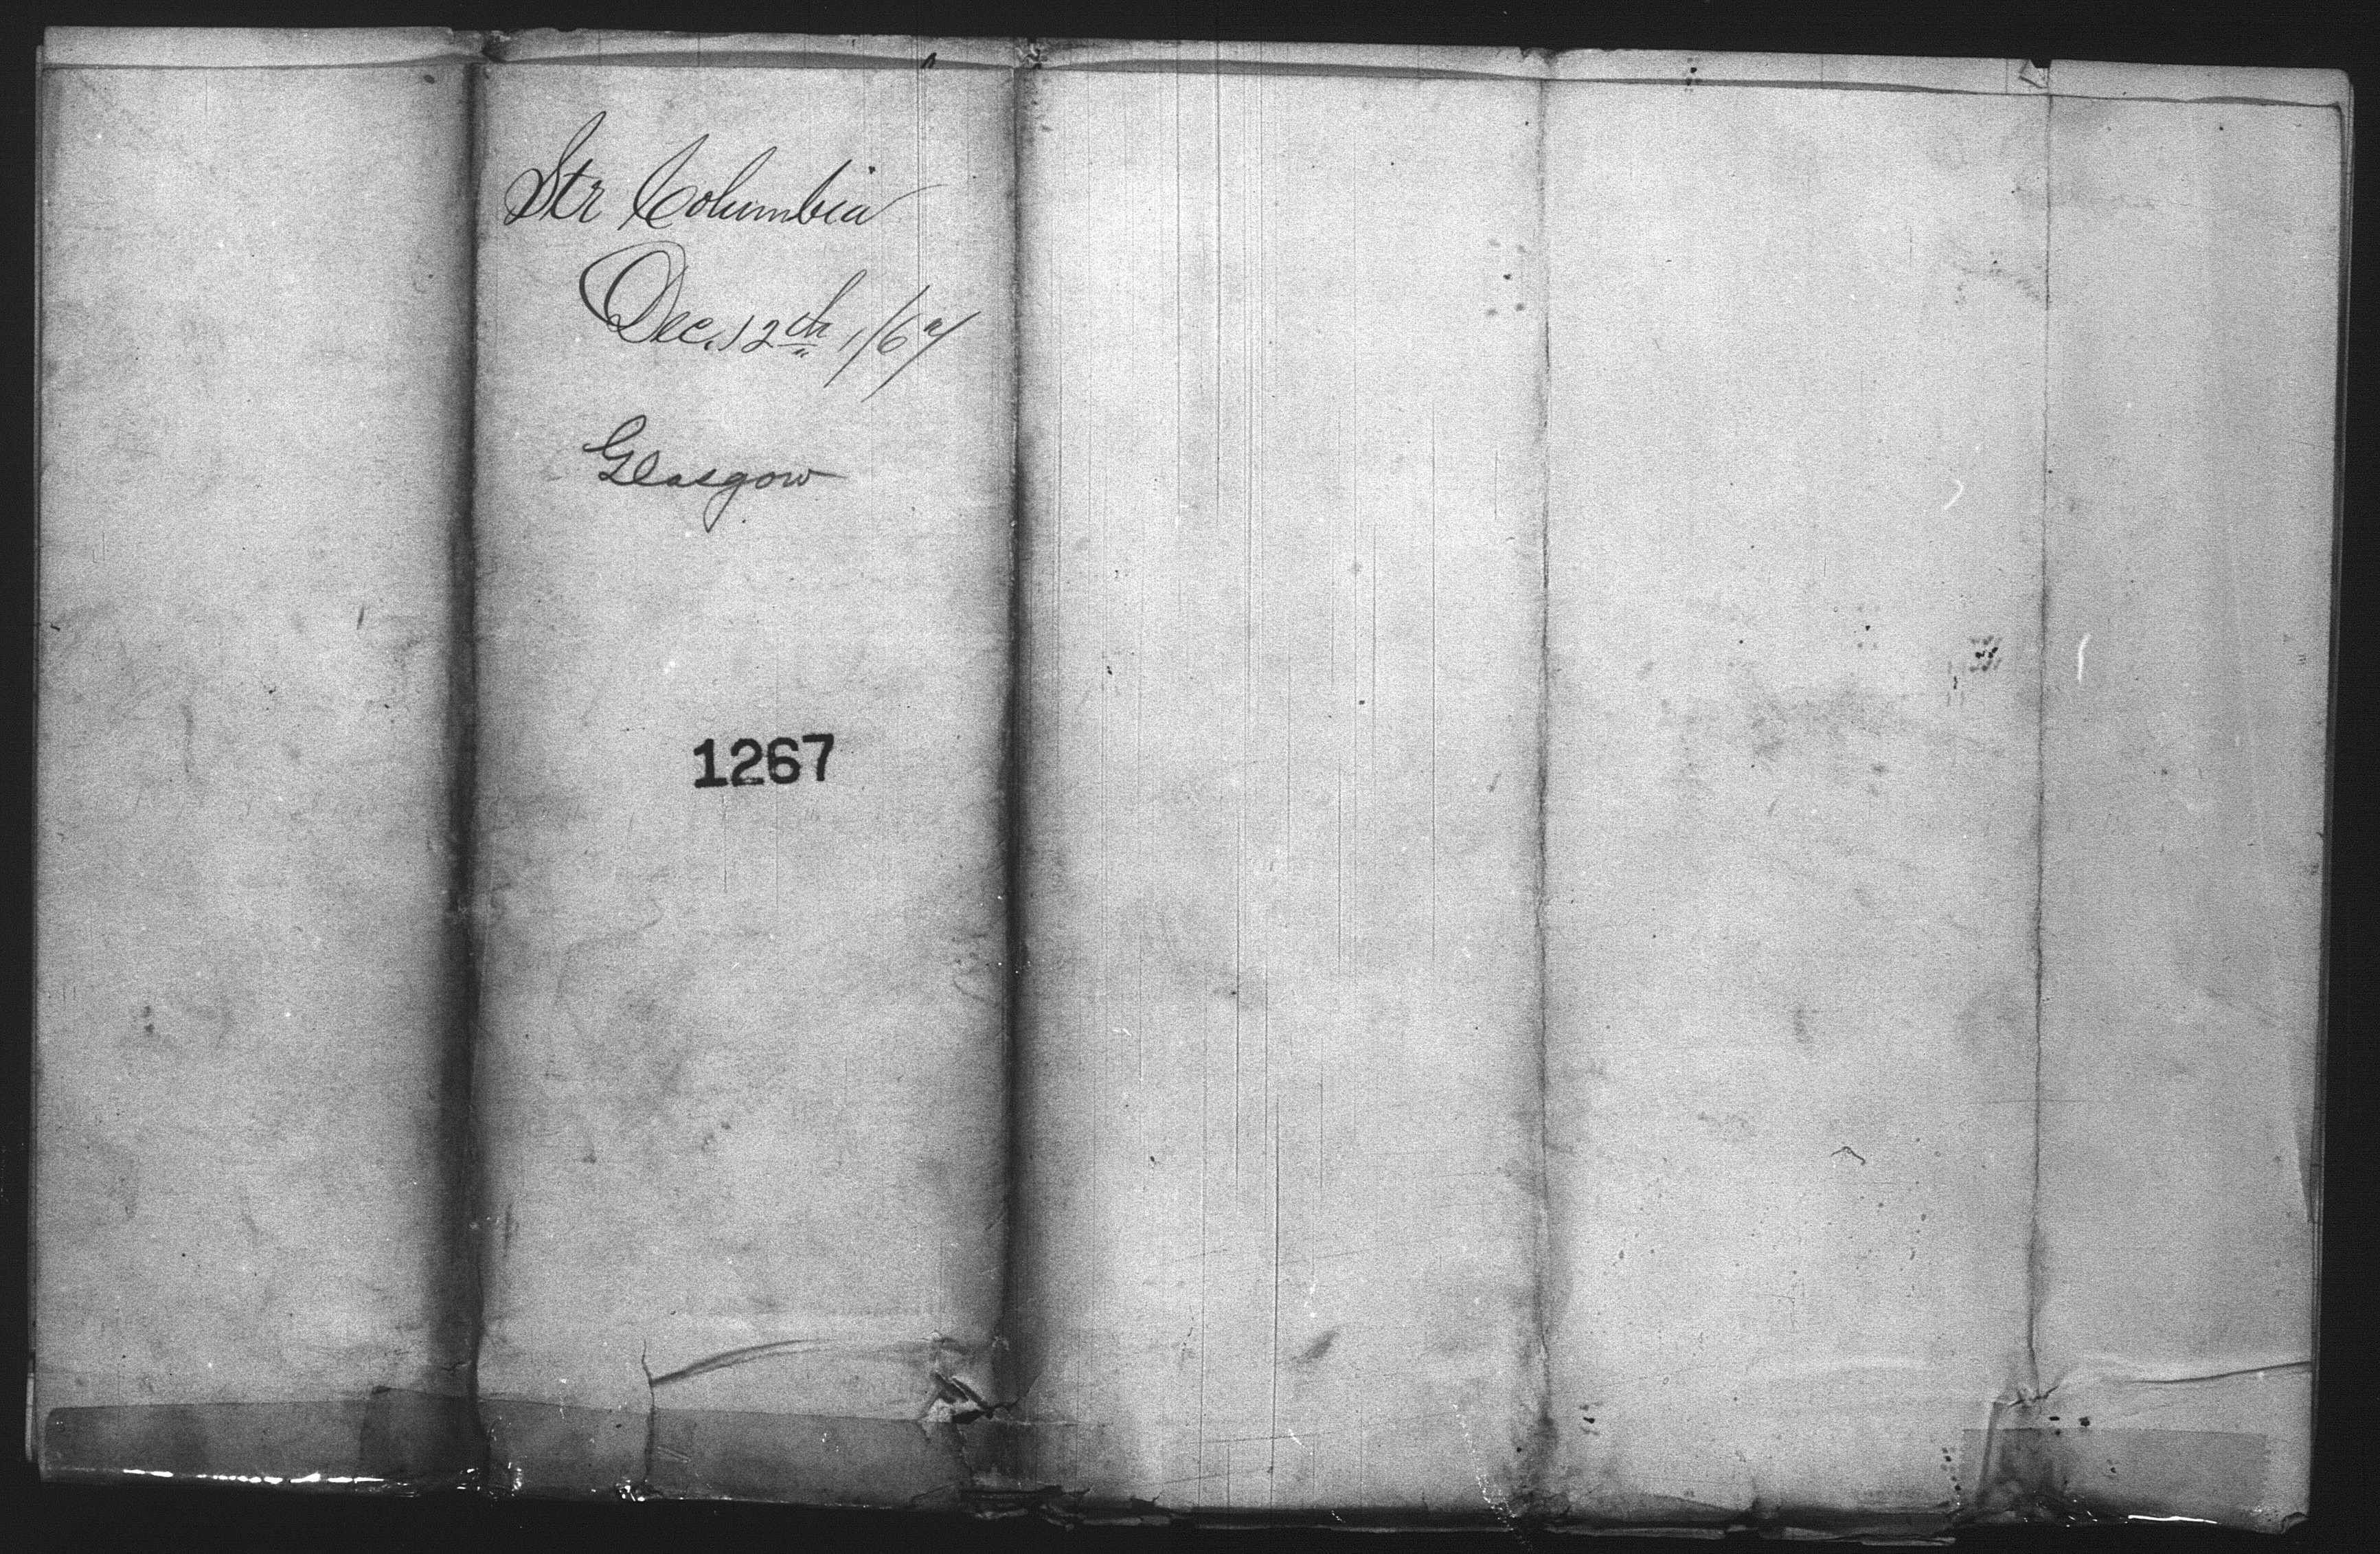 Str Columbia
Dec. 12th, /67
Glasgow
1267